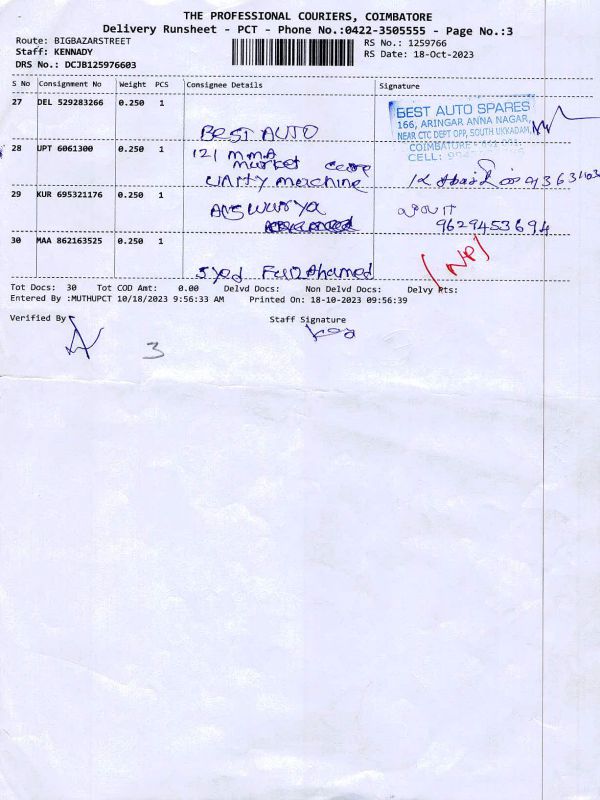 THE PROFESSIONAL COURIERS, COIMBATORE
Delivery Runsheet - PCT - Phone No.:0422-3505555 - Page No.:3
Route: BIGBAZARSTREET
Staff: KENNADY
DRS No.: DCJB125976603
RS No.: 1259766
RS Date: 18-Oct-2023
S No Consignment No Weight PCS Consignee Details Signature
27 DEL 529283266 0.250 1
BEST AUTO
BEST AUTO SPARES
166, ARINGAR ANNA NAGAR,
NEAR CTC DEPT OPP, SOUTH UKKADAM,
COIMBATORE
CELL:
28 UPT 6061300 0.250 1
121 MMA
market
machine
29 KUR 695321176 0.250 1
9629453694
30 MAA 862163525 0.250 1
Syed
(NP)
Tot Docs: 30 Tot COD Amt: 0.00 Delvd Docs: Non Delvd Docs: Delvy Pts:
Entered By :MUTHUPCT 10/18/2023 9:56:33 AM Printed On: 18-10-2023 09:56:39
Verified By Staff Signature
3